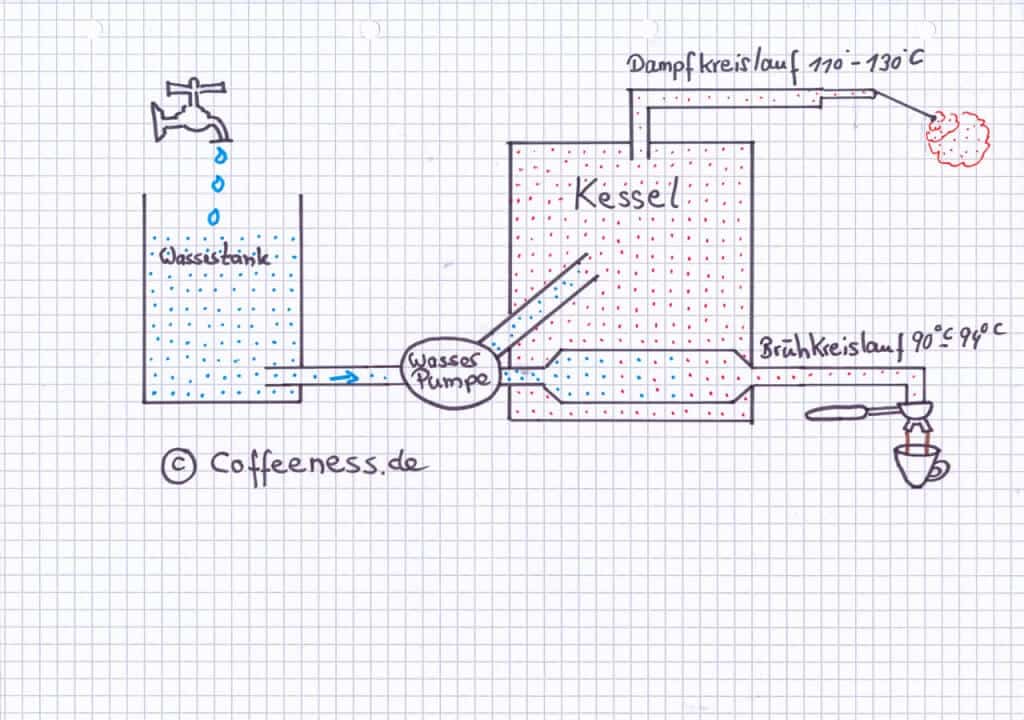 Dampfkreislauf 110°-130°C
Kessel
Wassistank
Brühkreislauf 90°C-94°C
Wasser
Pumpe
© Coffeeness.de